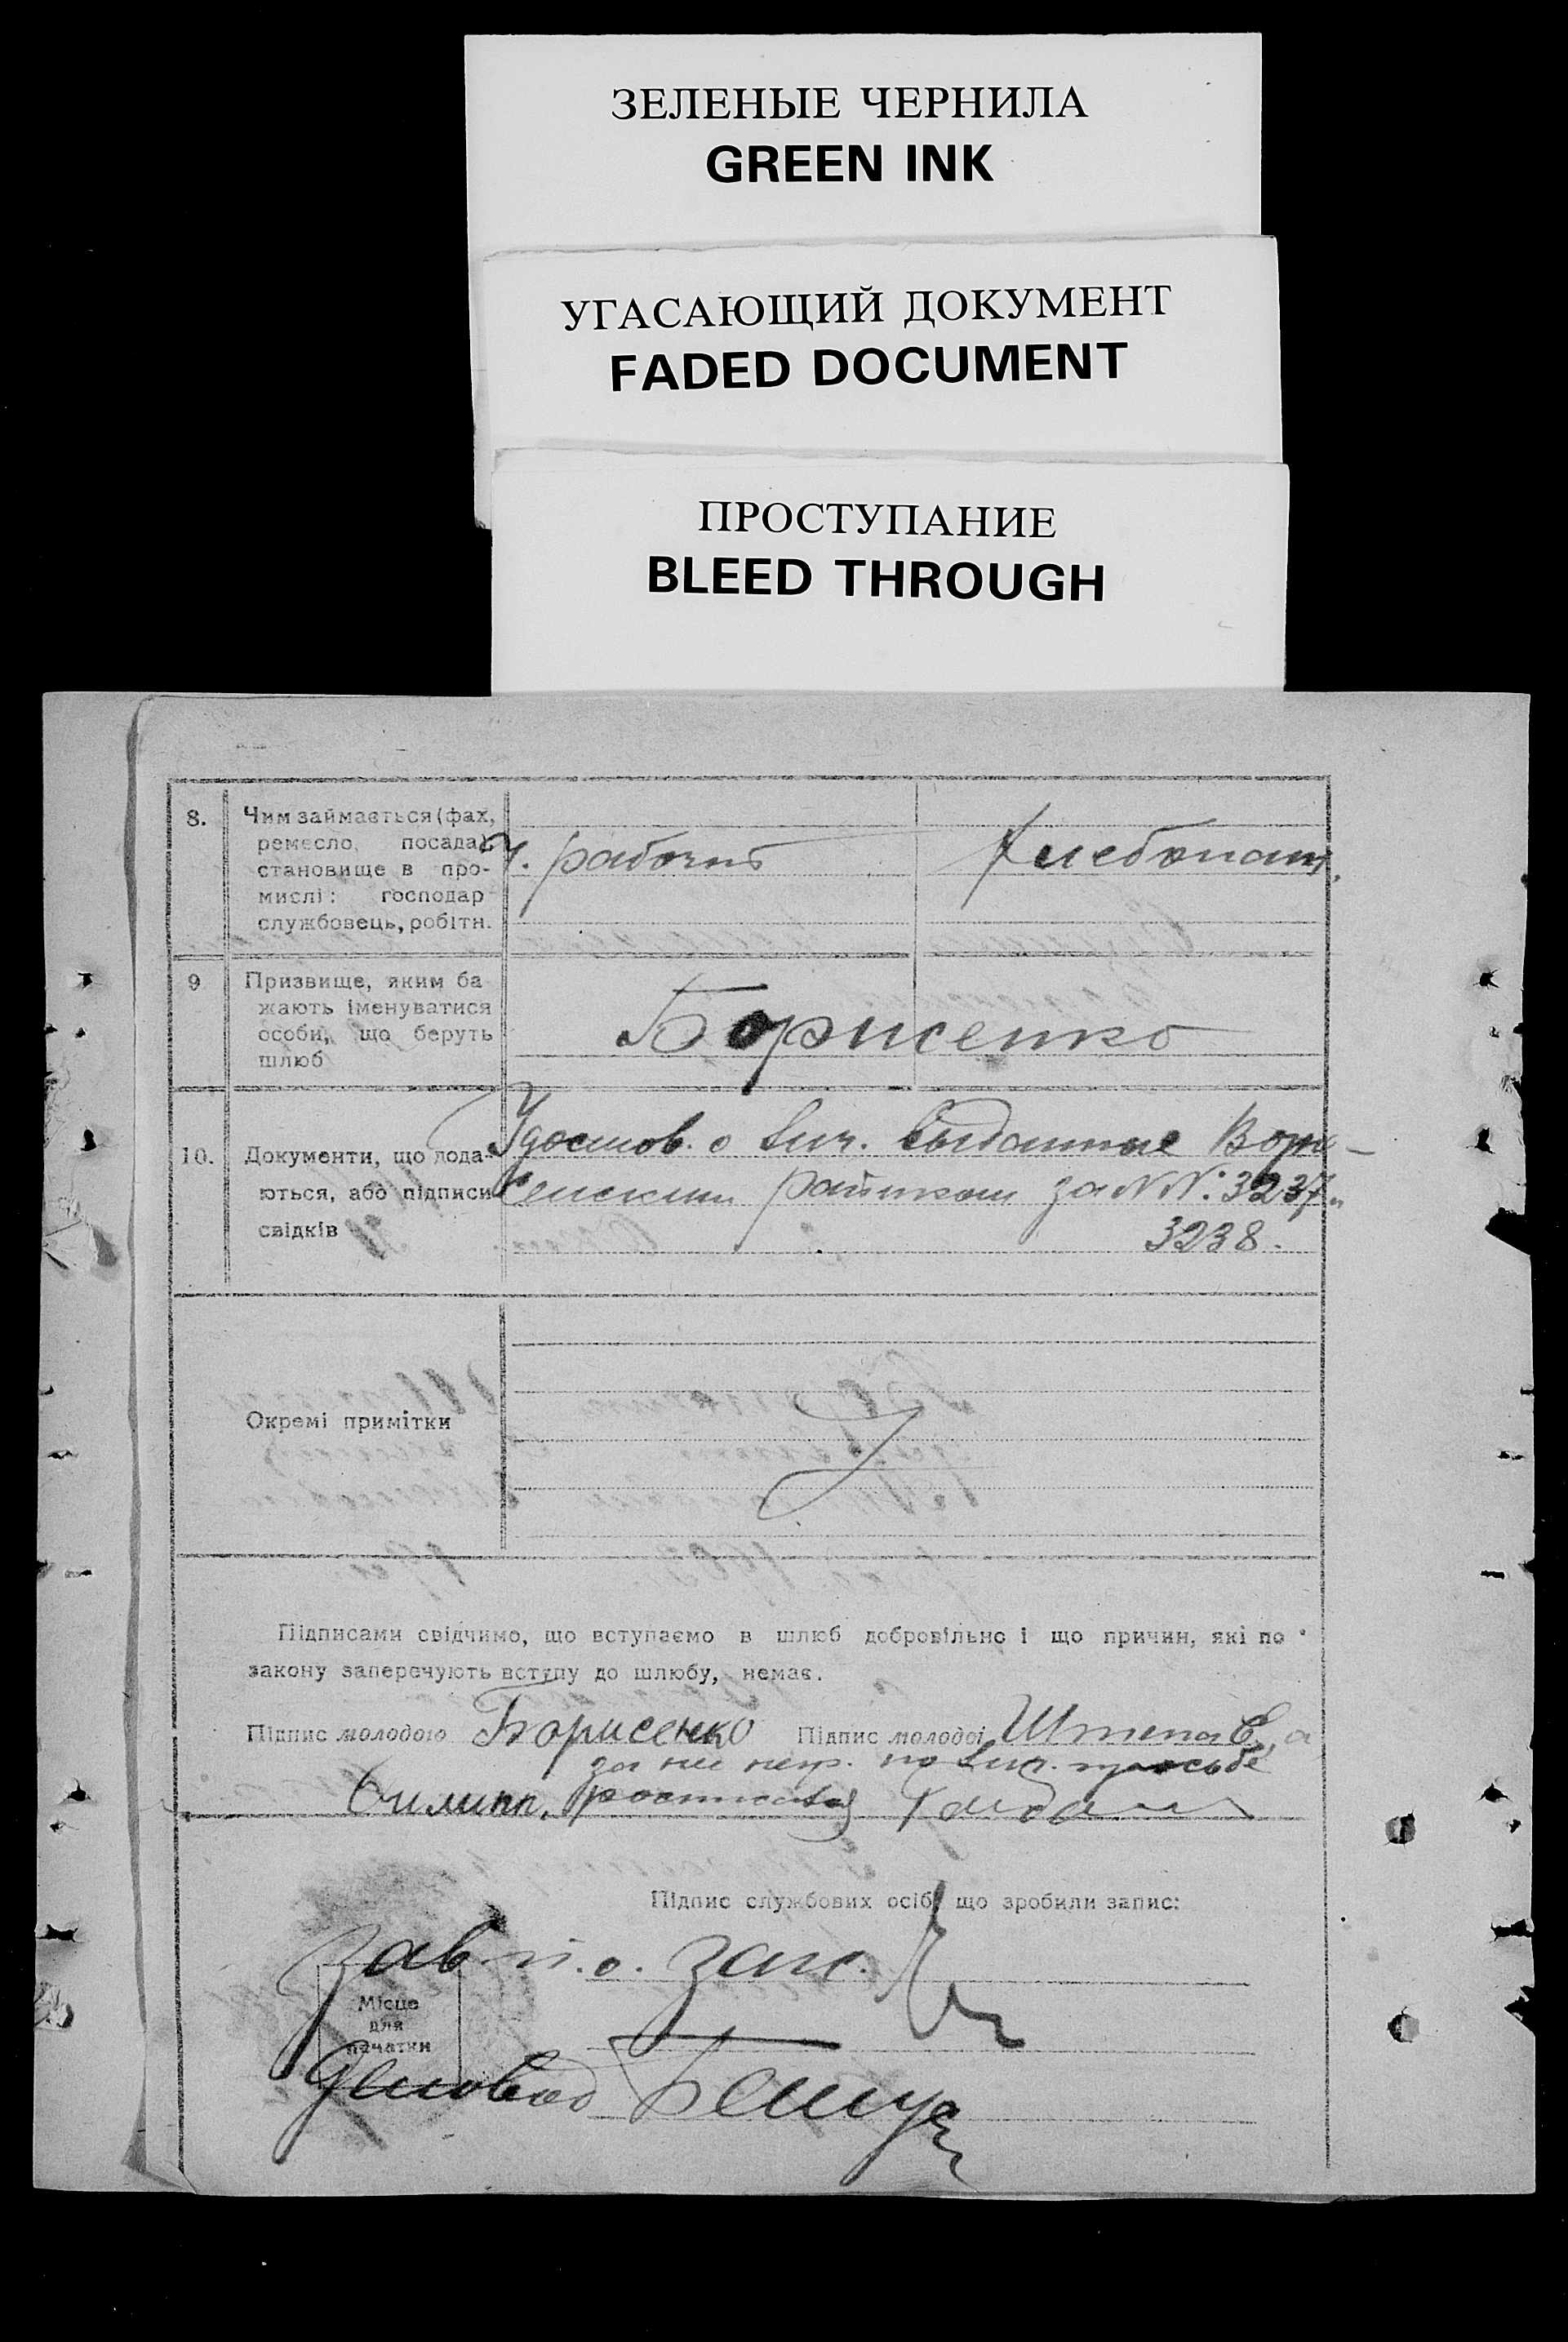 ЗЕЛЕНЫЕ ЧЕРНИЛА
GREEN INK
УГАСАЮЩИЙ ДОКУМЕНТ
FADED DOCUMENT
ПРОСТУПАНИЕ
BLEED THROUGH
8. Чим займається (фах,
ремесло, посада),
становище в про-
мислі: господар
службовець, робітн.
ч. рабочий
Хлебопаш.
9 Призвище, яким ба
жають іменуватися
особи, що беруть
шлюб
Борисенко
10. Документи, що дода-
ються, або підписи
свідків
Удостов. о лич. выданные
райиком за NN: 3237
3238.
Окремі примітки
Підписами свідчимо, що вступаємо в шлюб добровільно і що причин, які по
закону заперечують вступу до шлюбу, немає.
Підпис молодого Борисенко Підпис молодої Штепа Е, а
за не негр. по лич. просьбе
росписался
Підпис службових осіб, що зробили запис:
Зав п.о. загс.
Місце
для
печатки
Деловод